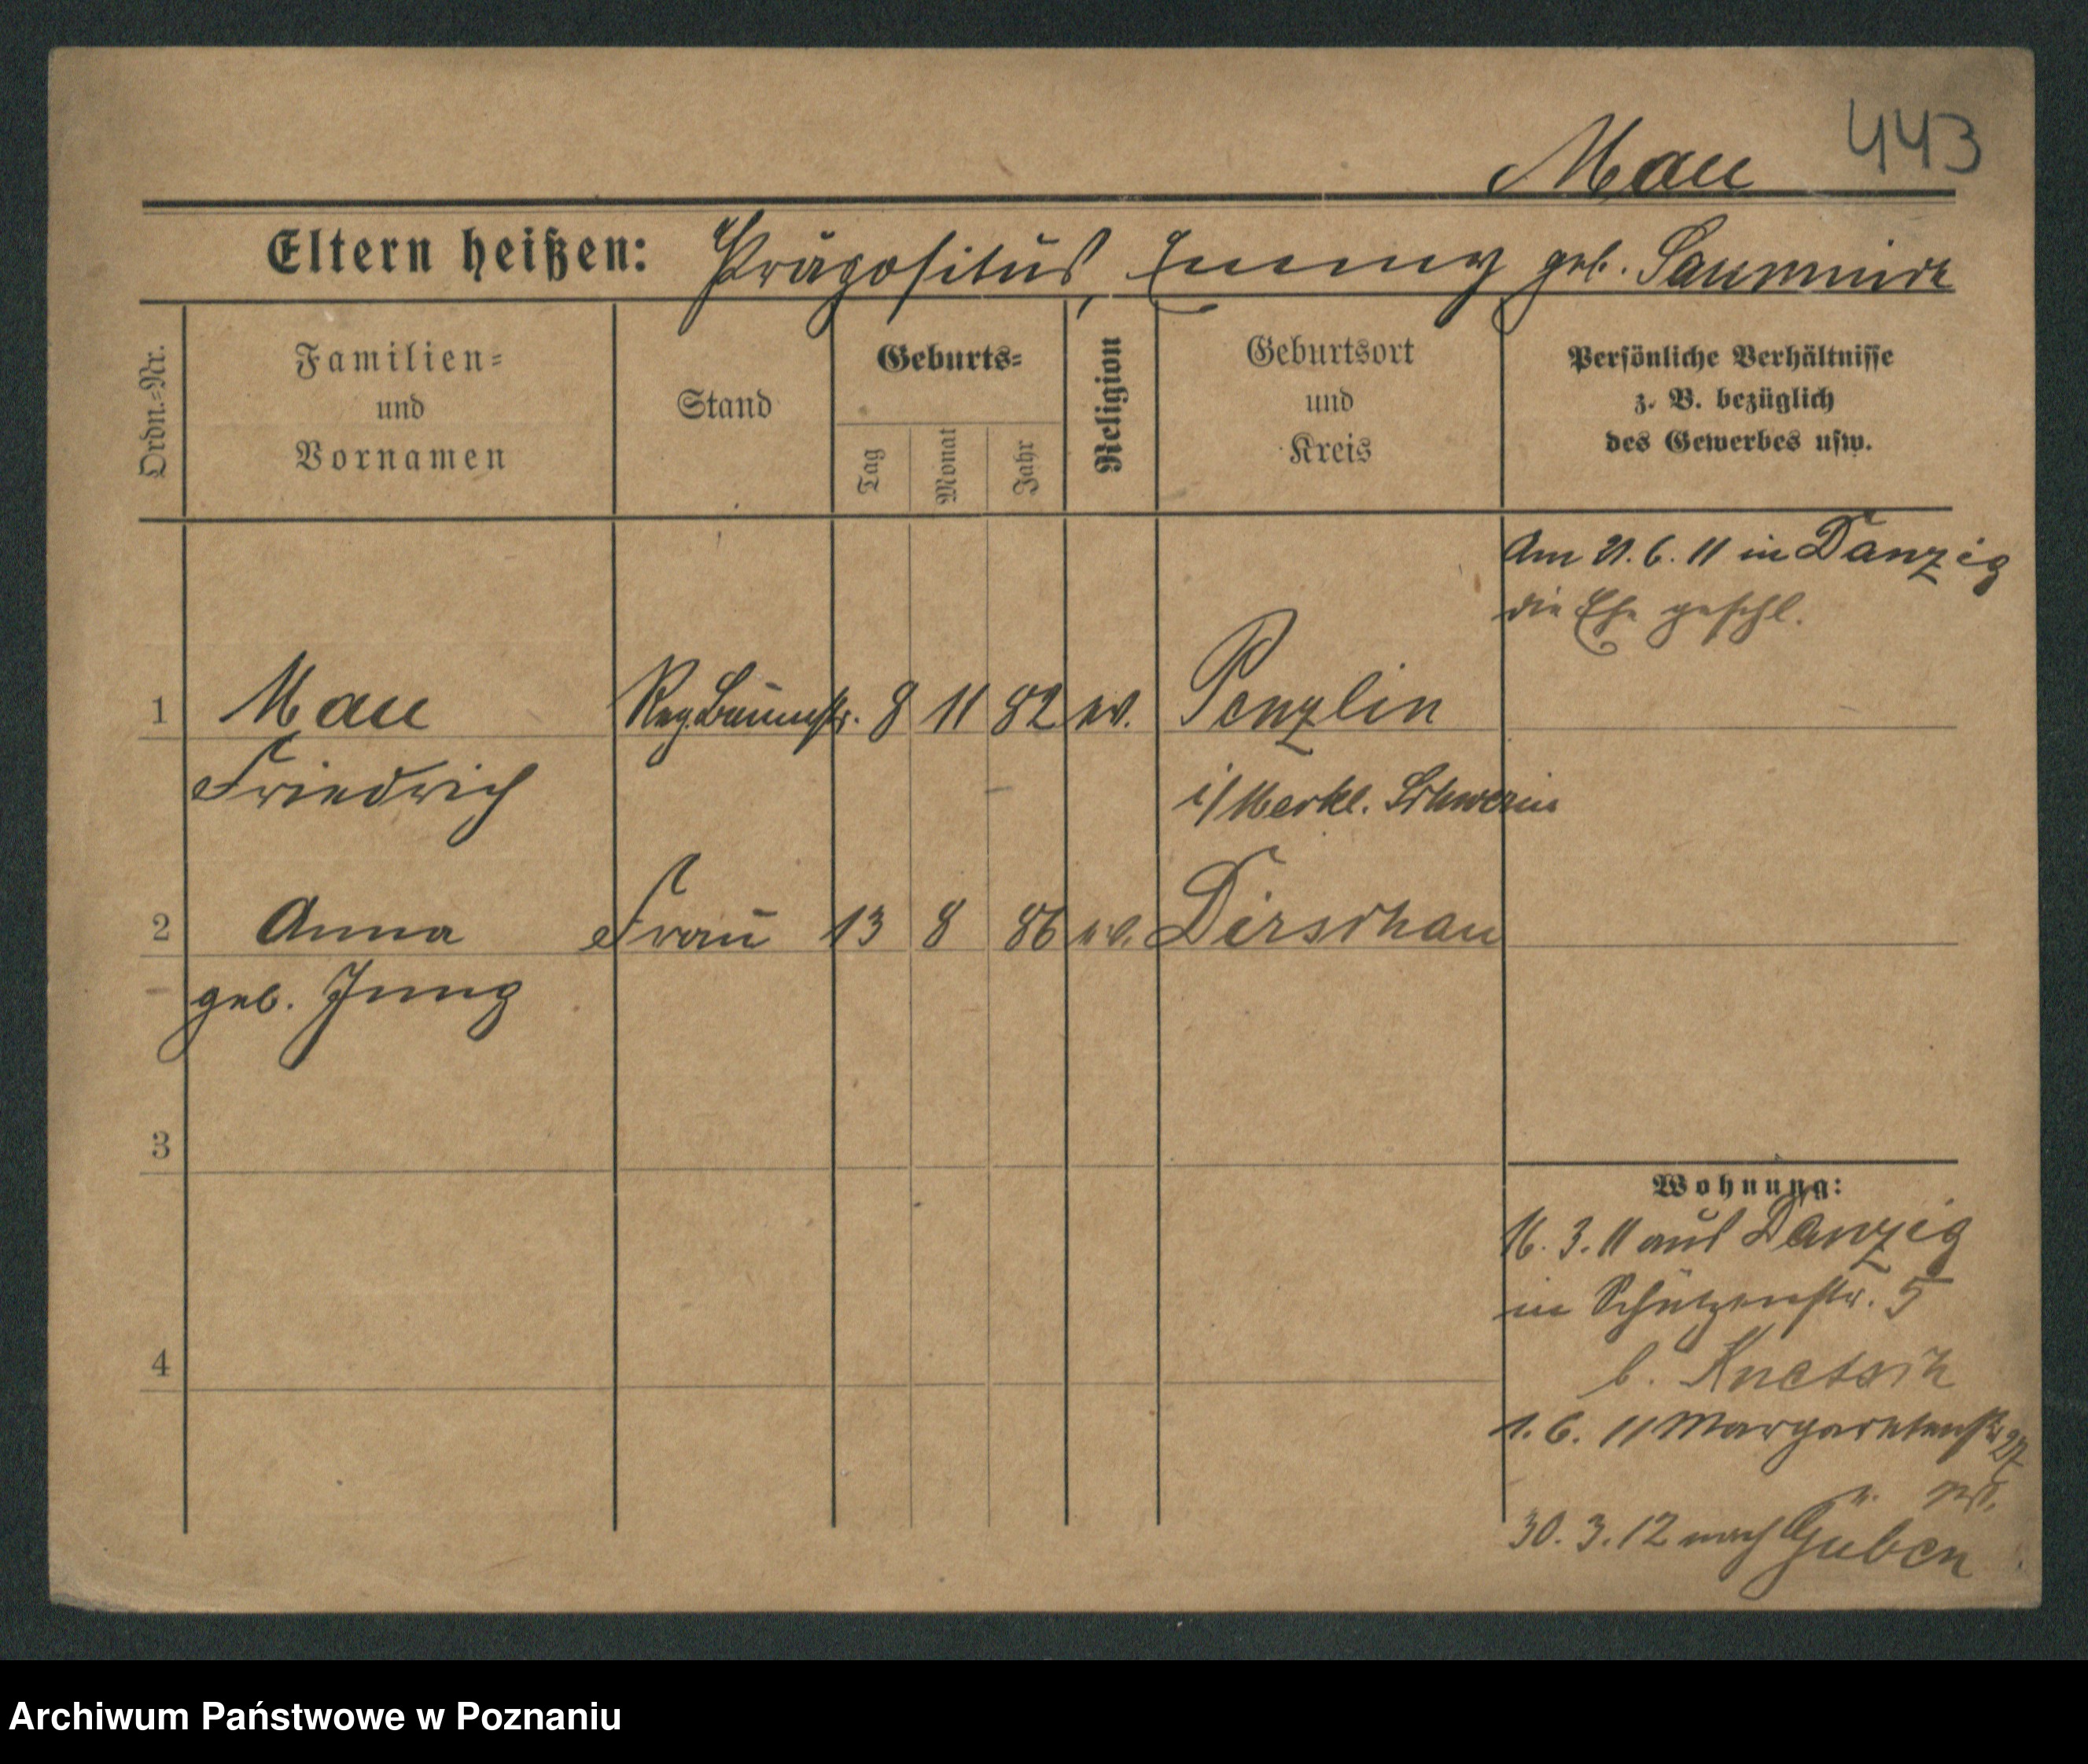 443
Mau
Eltern heißen: Präpositus, Emmy geb.
Ordn.-Nr.
Familien-
und
Vornamen
Stand
Geburts-
Tag
Monat
Jahr
Religion
Geburtsort
und
Kreis
Persönliche Verhältnisse
z. B. bezüglich
des Gewerbes usw.
Am 21. 6. 11 in Danzig
die Ehe geschl.
1 Mau Reg. Baumstr. 8 11 82 ev. Penzlin
Friedrich i/Meckl. Schwerin
2 Anna Frau 13 8 86 ev. Dirschau
geb. Jung
3
Wohnung:
16. 3. 11 aus Danzig
in Schützenstr. 5
4
b.
1. 6. 11 Margaretenstr 27
30. 3. 12 nach Guben
Archiwum Państwowe w Poznaniu